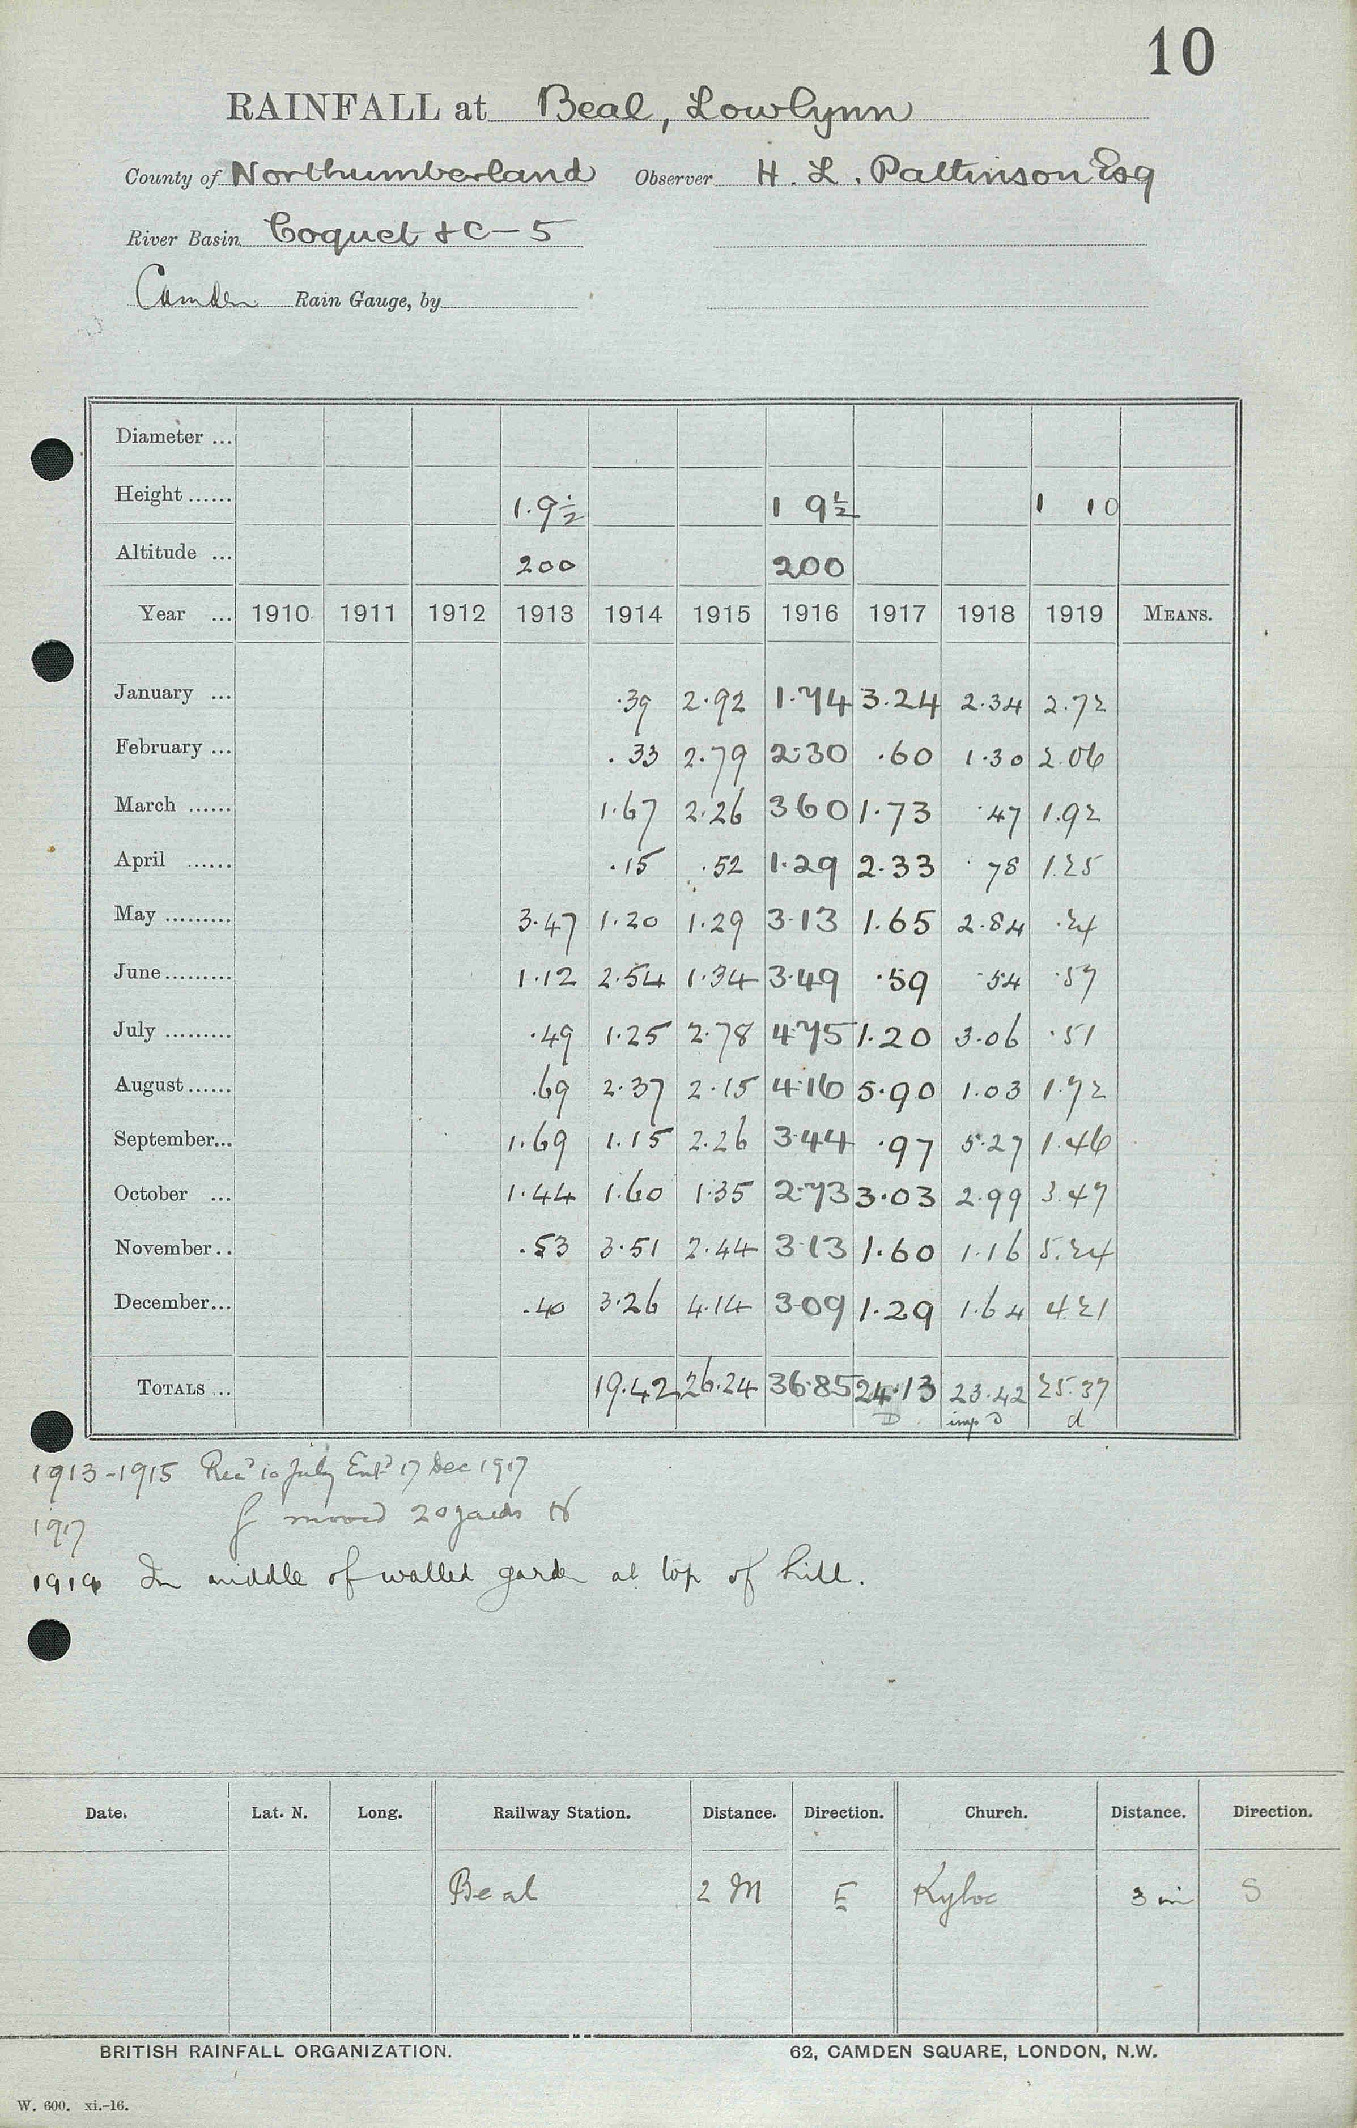 10
RAINFALL at Beal, Lowlynn
County of Northumberland Observer H. L. Pattinson Esq
River Basin Coquet &C - 5
Camden Rain Gauge, by
Diameter ...
Height ...... 1.9½ 1 9½ 1 10
Altitude ... 200 200
Year ... 1910 1911 1912 1913 1914 1915 1916 1917 1918 1919 MEANS.
January ... .39 2.92 1.74 3.24 2.34 2.72
February ... .33 2.79 2.30 .60 1.30 2.06
March ...... 1.67 2.26 3 60 1.73 .47 1.92
April ...... .15 .52 1.29 2.33 .78 1.25
May ......... 3.47 1.20 1.29 3.13 1.65 2.84 .24
June ......... 1.12 2.54 1.34 3.49 .59 .54 .57
July ......... .49 1.25 2.78 4.75 1.20 3.06 .51
August ...... .69 2.37 2.15 4.16 5.90 1.03 1.72
September... 1.69 1.15 2.26 3.44 .97 5.27 1.46
October ... 1.44 1.60 1.35 2.73 3.03 2.99 3.47
November.. .53 3.51 2.44 3.13 1.60 1.16 5.24
December... .40 3.26 4.14 3.09 1.29 1.64 4.21
TOTALS ... 19.42 26.24 36.85 24.13 23.42 25.37
D imp D d
1913-1915 Recd 10 July Entd 17 Dec 1917
1917 moved 20 yards
1919 In middle of walled garden at top of hill.
Date. Lat. N. Long. Railway Station. Distance. Direction. Church. Distance. Direction.
Beal 2 M E Kyloe 3 m S
BRITISH RAINFALL ORGANIZATION. 62, CAMDEN SQUARE, LONDON, N.W.
W. 600. xi.-16.